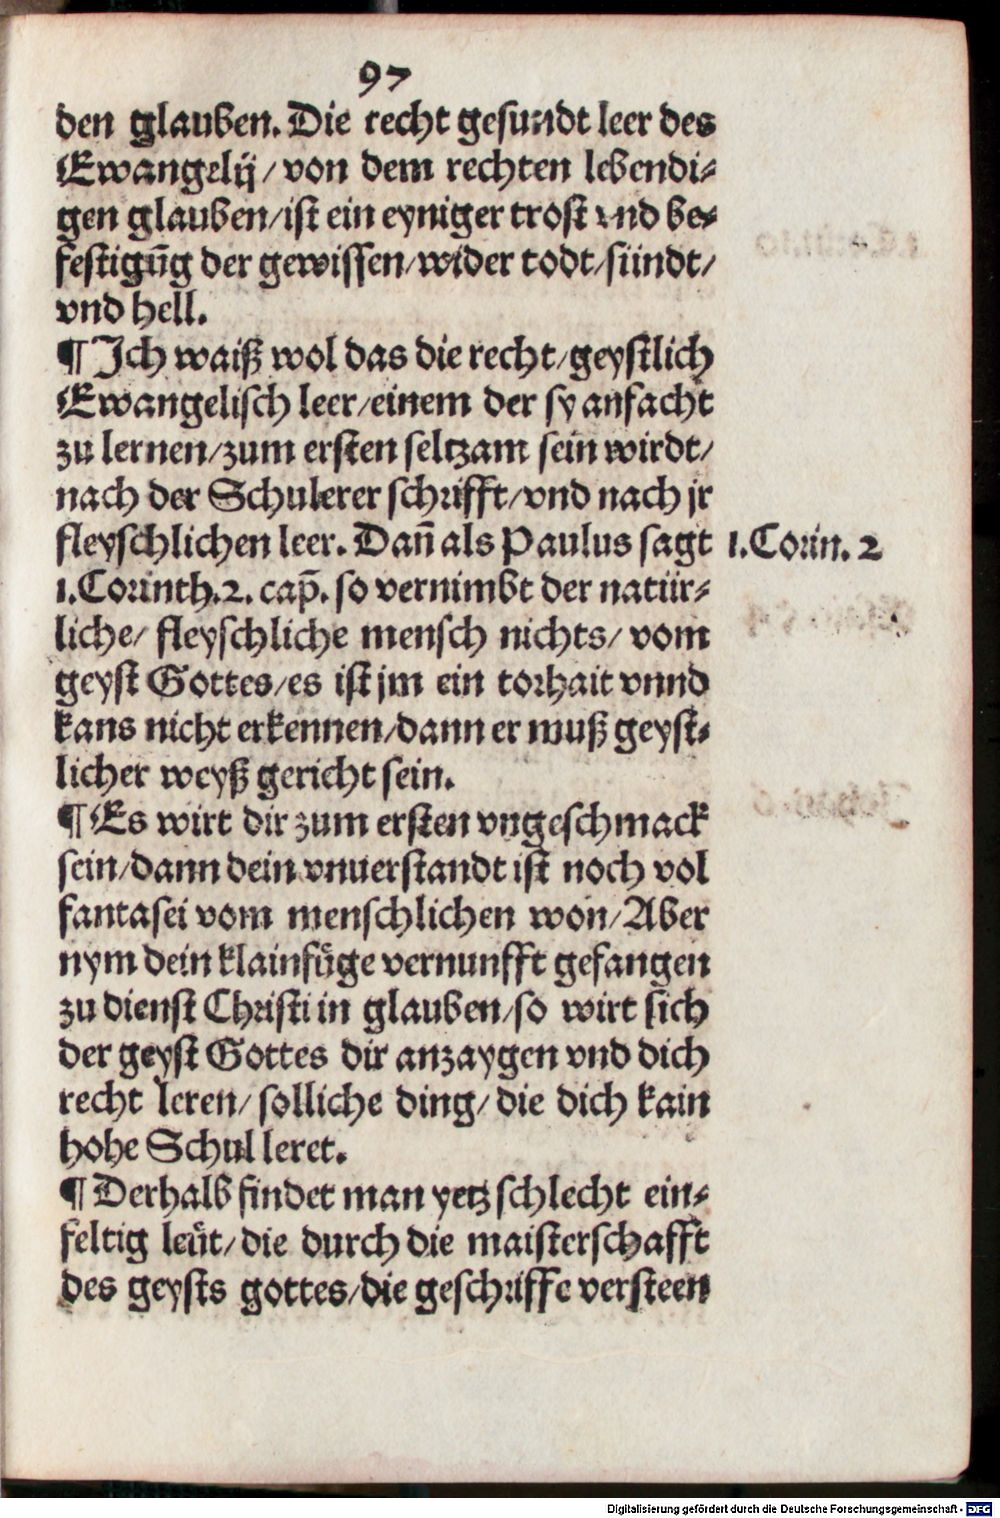 97
den glauben. Die recht gesundt leer des
Ewangelij / von dem rechten lebendi-
gen glauben / ist ein eyniger trost vnd be-
festigũg der gewissen / wider todt / sündt /
vnd hell.
¶ Ich waiß wol das die recht / geystlich
Ewangelisch leer / einem der sy anfacht
zu lernen / zum ersten seltzam sein wirdt /
nach der Schulerer schrifft / vnd nach jr
fleyschlichen leer. Dañ als Paulus sagt
1. Corin. 2
1. Corinth. 2. cap̃. so vernimbt der natür-
liche / fleyschliche mensch nichts / vom
geyst Gottes / es ist jm ein torhait vnnd
kans nicht erkennen / dann er muß geyst-
licher weyß gericht sein.
¶ Es wirt dir zum ersten vngeschmack
sein / dann dein vnuerstandt ist noch vol
fantasei vom menschlichen won / Aber
nym dein klainfůge vernunfft gefangen
zu dienst Christi in glauben / so wirt sich
der geyst Gottes dir anzaygen vnd dich
recht leren / solliche ding / die dich kain
hohe Schul leret.
¶ Derhalb findet man yetz schlecht ein-
feltig leüt / die durch die maisterschafft
des geysts gottes / die geschriffe versteen
Digitalisierung gefördert durch die Deutsche Forschungsgemeinschaft - DFG